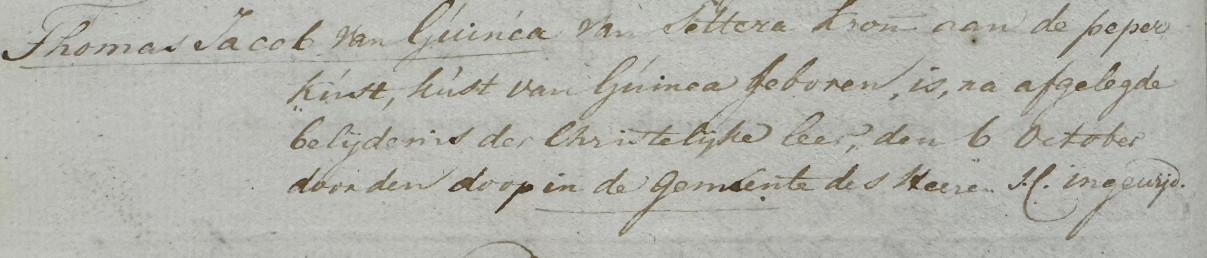 Thomas Jacob van Guinéa van Settera Kron aan de peper
kust, kust van Guinea geboren, is, na afgelegde
belijdenis der Christelijke leer, den 6 October
door den doop in de gemeente des Heeren J.C. ingewijd.